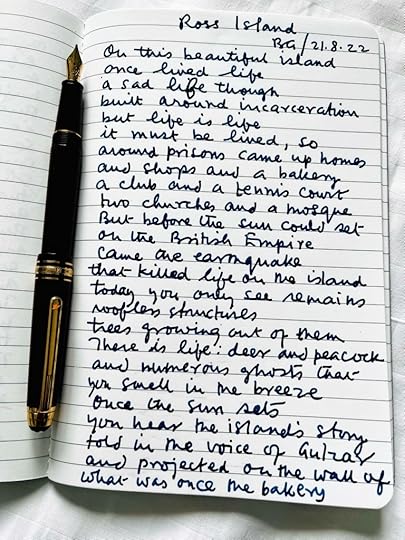 Ross Island
BG/21.8.22
On this beautiful island
once lived life
a sad life though
built around incarceration
but life is life
it must be lived, so
around prisons came up homes
and shops and a bakery
a club and a tennis court
two churches and a mosque
But before the sun could set
on the British Empire
came the earthquake
that killed life on the island
today you only see remains
roofless structures
trees growing out of them
There is life: deer and peacock
and numerous ghosts that
you smell in the breeze
Once the sun sets
you hear the island's story
told in the voice of Gulzar
and projected on the wall of
what was once the bakery